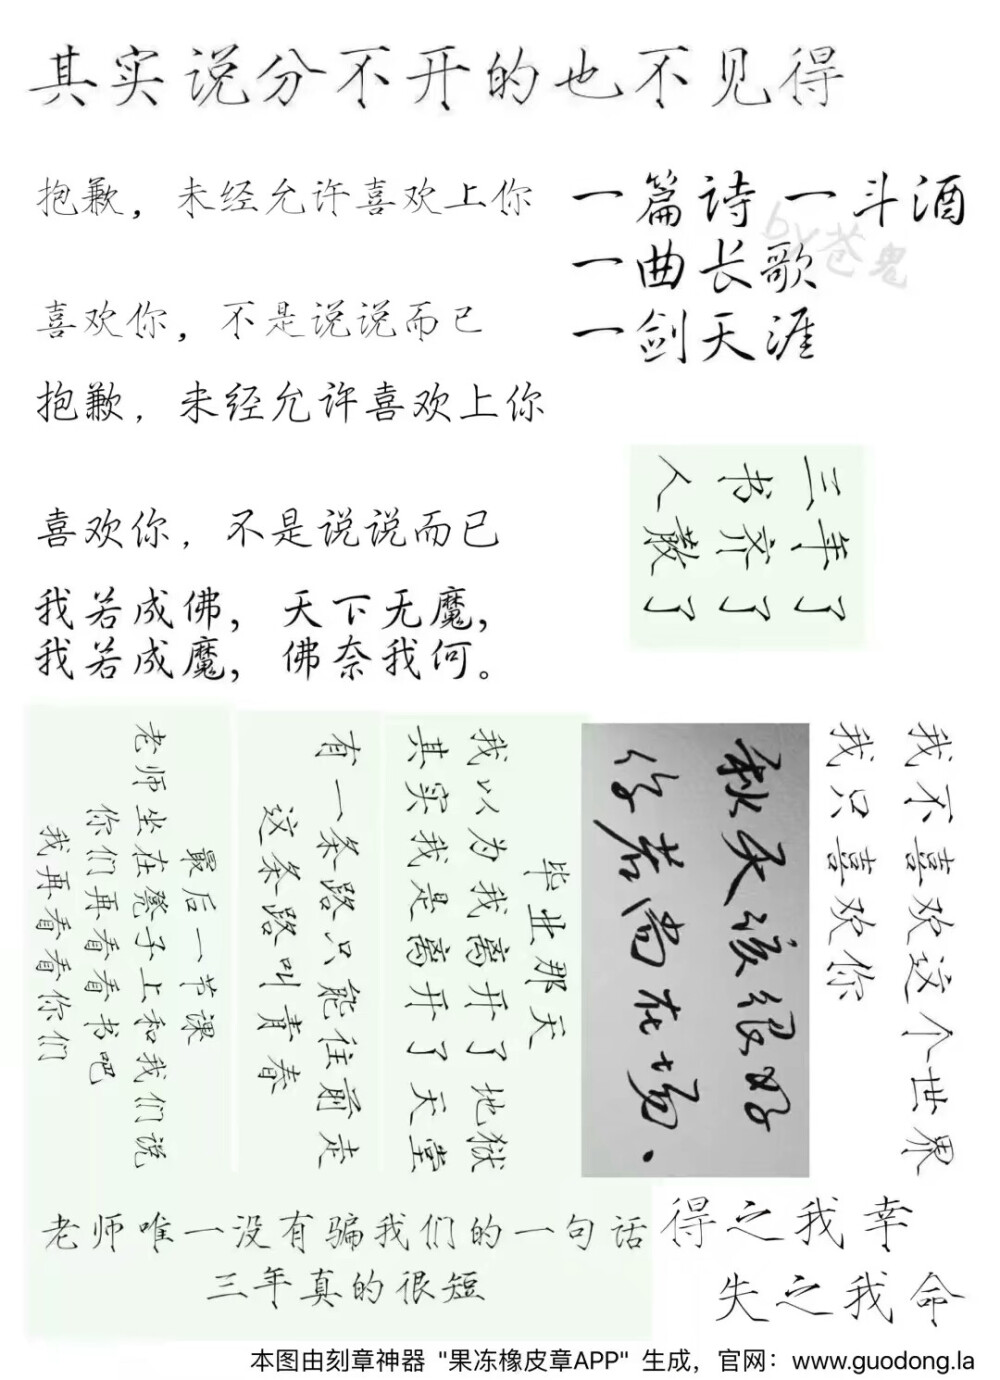 其实说分不开的也不见得
抱歉，未经允许喜欢上你
一篇诗 一斗酒
一曲长歌
一剑天涯
by苍鬼
喜欢你，不是说说而已
抱歉，未经允许喜欢上你
喜欢你，不是说说而已
三年了
书齐了
人散了
我若成佛，天下无魔，
我若成魔，佛奈我何。
最后一节课
老师坐在凳子上和我们说
你们再看看书吧
我再看看你们
有一条路只能往前走
这条路叫青春
毕业那天
我以为我离开了地狱
其实我是离开了天堂
秋天该很好
你若尚在场.
我不喜欢这个世界
我只喜欢你
老师唯一没有骗我们的一句话
三年真的很短
得之我幸
失之我命
本图由刻章神器 "果冻橡皮章APP" 生成，官网：www.guodong.la